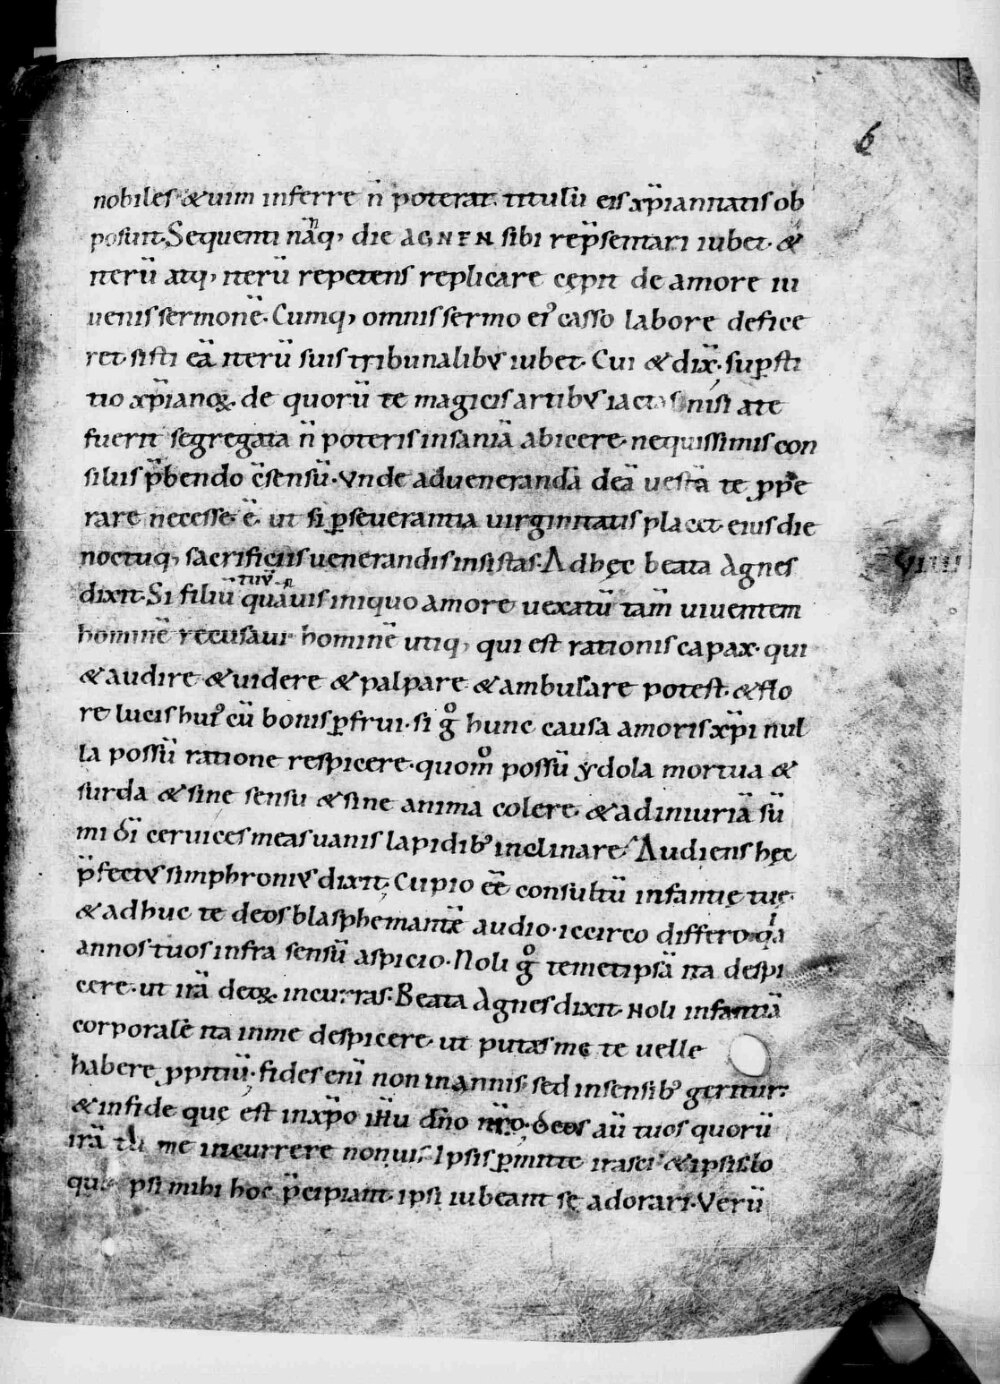 6
nobiles & uim inferre n̄ poterat. titulū eis xp̄ianitatis ob
posuit. Sequenti nāq; die AGNEN sibi rep̄sentari iubet. &
iterū atq; iterū repetens replicare cępit de amore iu
uenis sermonē. Cumq; omnis sermo ei᾿ casso labore defice
ret. sisti eā iterū suis tribunalibus iubet. Cui & dix̄. sup̱sti
tio xp̄ianoꝝ. de quorū te magicis artibus iactas nisi a te
fuerit segregata n̄ poteris insaniā abicere. nequissimis con
siliis p̄bendo c̄sensū. Vnde ad uenerandā deā uestā te ꝓpe
rare necesse. ē. ut si ꝑseuerantia uirginitatis placet. eius die
noctuq; sacrificiis uenerandis insistas. Ad hęc beata Agnes
VIIII
dixit. Si filiū tuū quāuis iniquo amore uexatū tam̄ uiuentem
hominē recusaui. hominē utiq; qui est rationis capax. qui
& audire & uidere & palpare & ambulare potest. & flo
re lucis hui᾿ cū bonis ꝑfrui. si gͦ hunc causa amoris xp̄i nul
la possū ratione respicere. quom̊ possū ydola mortua &
surda & sine sensu & sine anima colere. & ad iniuriā sū
mi dī ceruices meas uanis lapidib᾿ inclinare. Audiens hęc
p̄fectus simphronius dixit. Cupio ēē consultū infantię tuę.
& adhuc te deos blasphemantē audio. iccirco differo. qͥa
annos tuos infra sensū aspicio. Noli gͦ temetipsā ita despi
cere. ut irā deoꝝ incurras. Beata Agnes dixit. Noli infantiā
corporalē ita in me despicere. ut putas me te uelle
habere ꝓpitiū. fides enī non in annis. sed in sensib᾿ geritur.
& in fide quę est in xp̄o ih̄u dn̄o nr̄o. deos aū tuos quorū
irā tu me incurrere non uis. Ipsis ꝑmitte irasci. & ipsi lo
ipsi mihi hoc p̄cipiant. ipsi iubeant se adorari. Verū